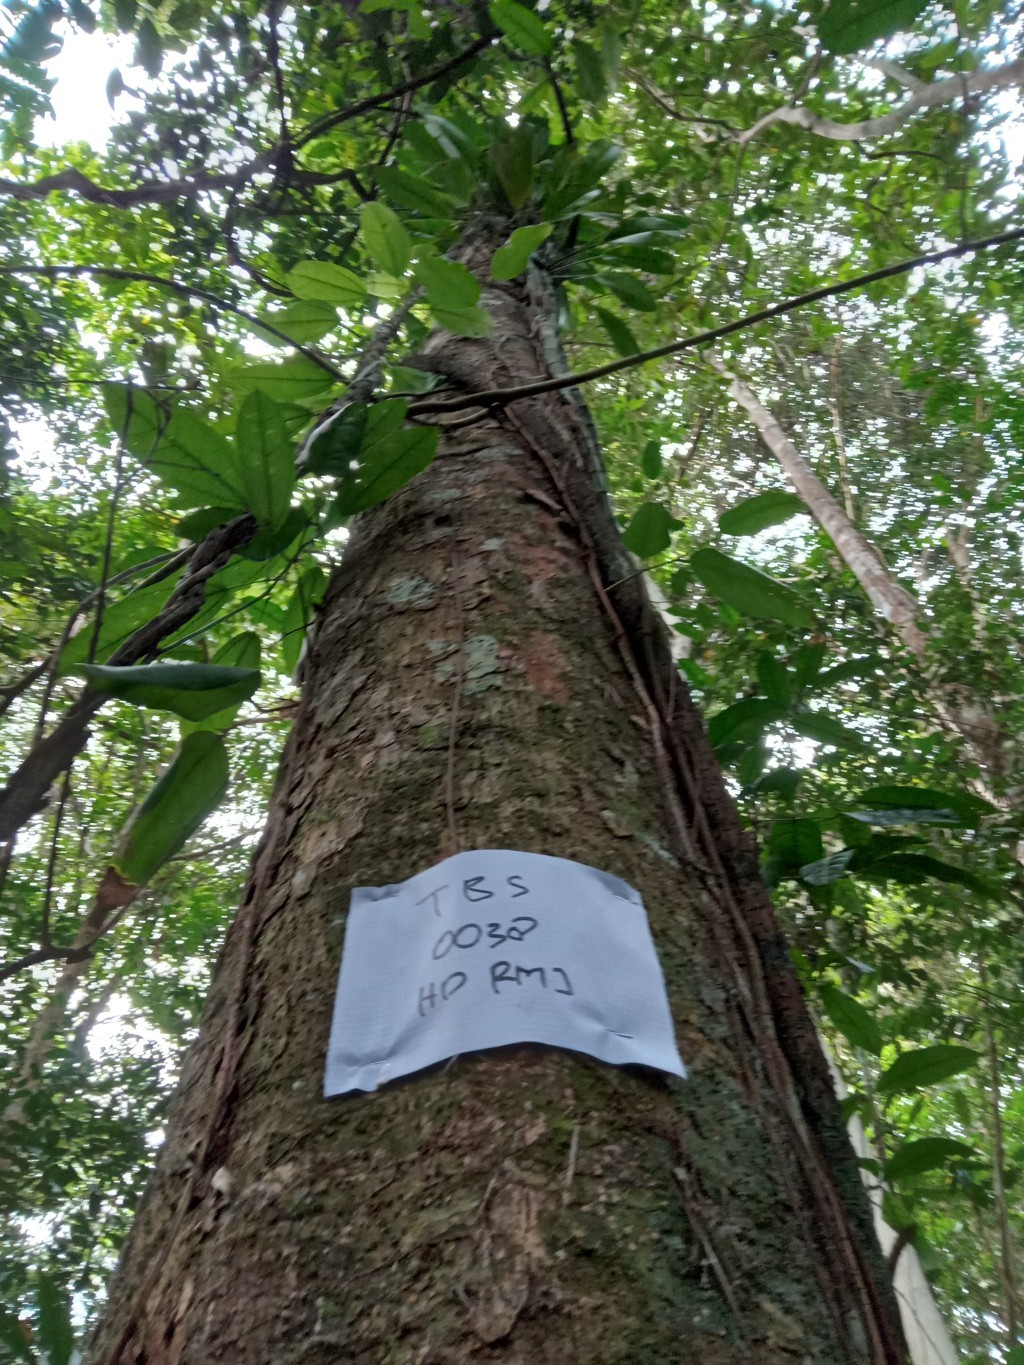 TBS
0038
HD RMJ